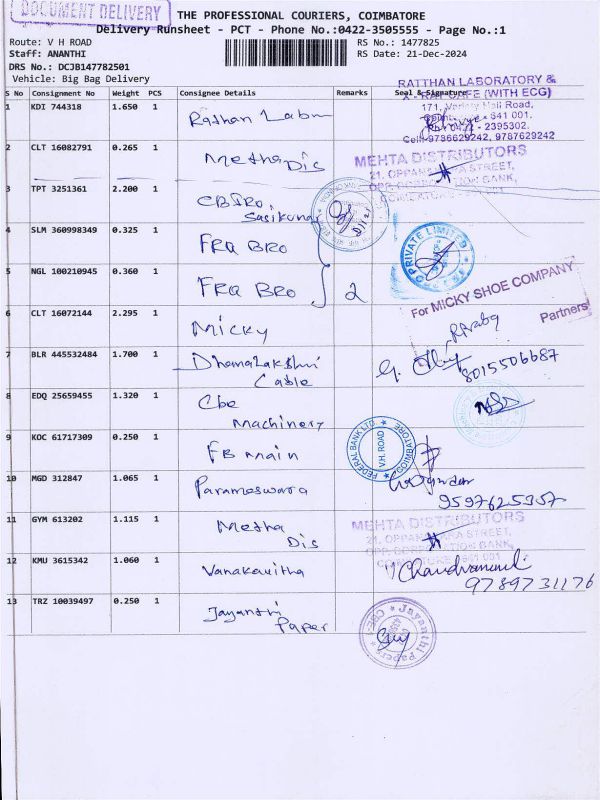 DOCUMENT DELIVERY
THE PROFESSIONAL COURIERS, COIMBATORE
Delivery Runsheet - PCT - Phone No.:0422-3505555 - Page No.:1
Route: V H ROAD
RS No.: 1477825
Staff: ANANTHI
RS Date: 21-Dec-2024
DRS No.: DCJB147782501
Vehicle: Big Bag Delivery
S No Consignment No Weight PCS Consignee Details Remarks Seal & Signature
RATTHAN LABORATORY &
X - RAY CAFE (WITH ECG)
171, Variety Hall Road,
641 001.
2395302,
Cell: 9786629242, 9787629242
1 KDI 744318 1.650 1 Ratthan Labm
2 CLT 16082791 0.265 1 Metha Dis
MEHTA DISTRIBUTORS
21, OPPANAKARA STREET,
3 TPT 3251361 2.200 1 CBIRO, Sasikumar
4 SLM 360998349 0.325 1 FRA BRO
PRIVATE LIMITED
5 NGL 100210945 0.360 1 FRA BRO 2
For MICKY SHOE COMPANY
Partners
6 CLT 16072144 2.295 1 Micky
7 BLR 445532484 1.700 1 Dhanalakshmi Cable
8015506687
8 EDQ 25659455 1.320 1 Cbe Machinery
9 KOC 61717309 0.250 1 FB Main
FEDERAL BANK LTD.
V.H. ROAD
COIMBATORE
10 MGD 312847 1.065 1 Parameswara
9597625357
11 GYM 613202 1.115 1 Metha Dis
MEHTA DISTRIBUTORS
21, OPPANAKARA STREET,
12 KMU 3615342 1.060 1 Vanakavitha
9789731176
13 TRZ 10039497 0.250 1 Jayanthi Paper
Jayanthi Papers